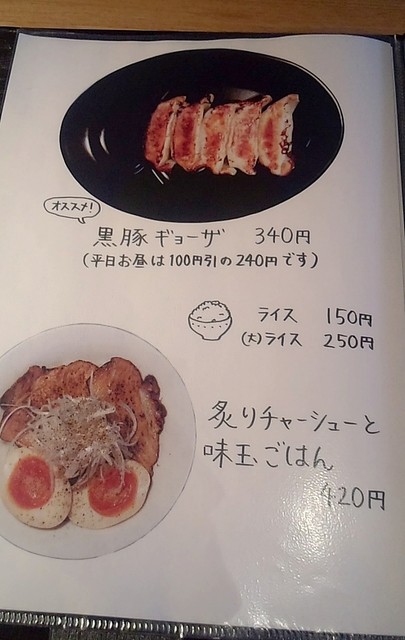 オススメ!
黒豚ギョーザ 340円
(平日お昼は100円引の240円です)
ライス 150円
(大)ライス 250円
炙りチャーシューと
味玉ごはん
420円